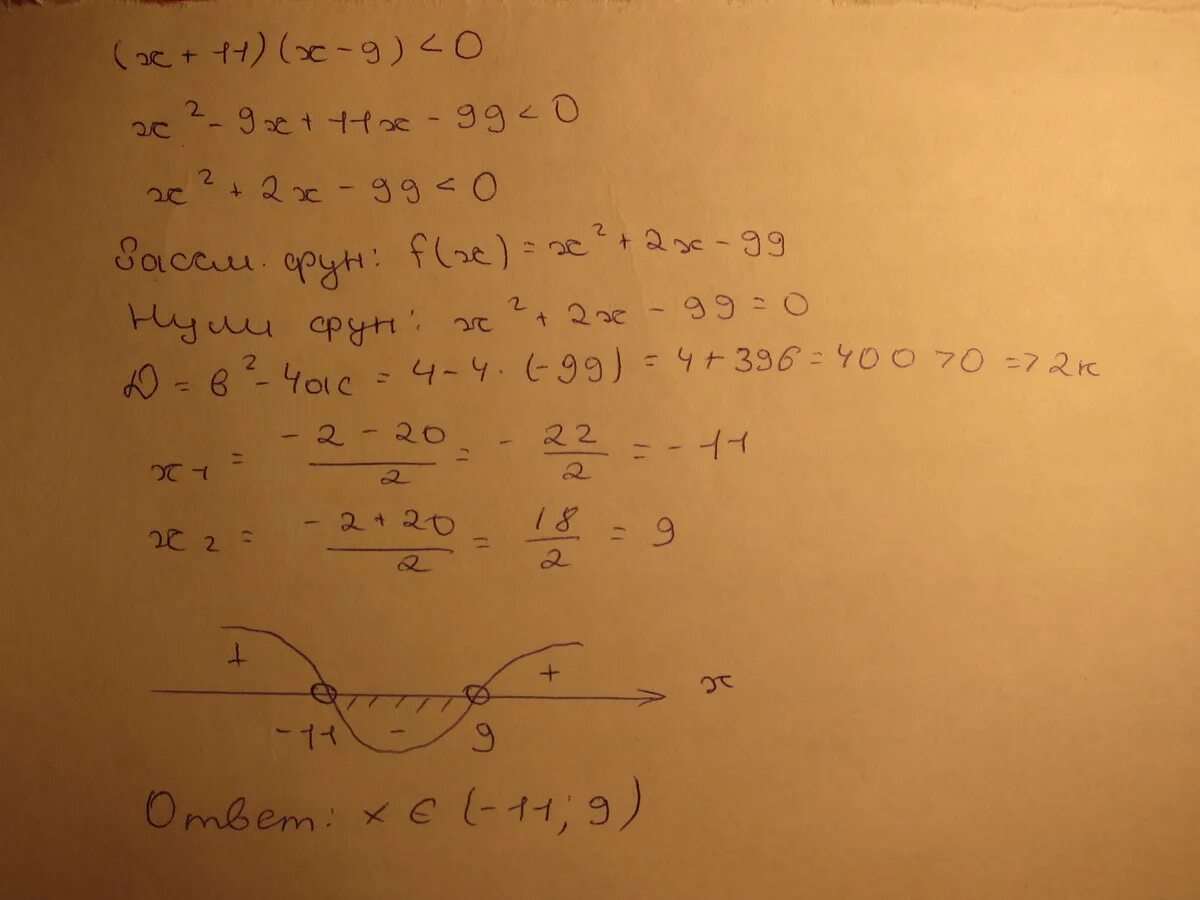 (x + 11)(x - 9) < 0
x² - 9x + 11x - 99 < 0
x² + 2x - 99 < 0
Рассм. фун: f(x) = x² + 2x - 99
Нули фун: x² + 2x - 99 = 0
D = в² - 4ac = 4 - 4 · (-99) = 4 + 396 = 400 > 0 => 2к
x₁ = (-2 - 20)/2 = -22/2 = -11
x₂ = (-2 + 20)/2 = 18/2 = 9
+ +
x
-11 - 9
Ответ: x ∈ (-11; 9)